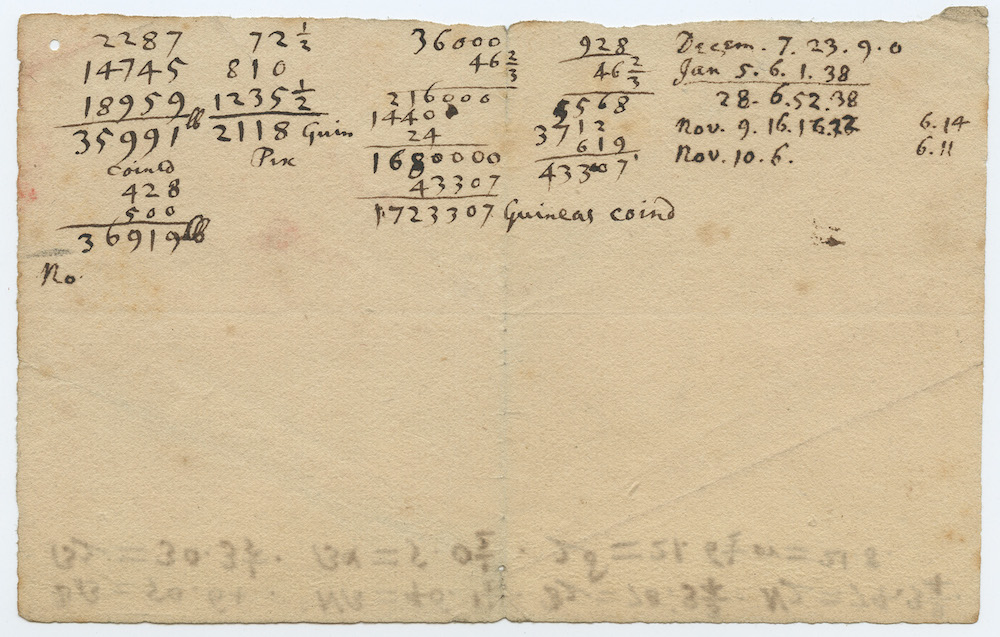 2287
14745
18959 lb
35991
coined
428
500
36919 lb
No.
72 1/2
810
1235 1/2
2118 Guin
Pix
36000
46 2/3
216000
1440
24
1680000
43307
1723307 Guineas coind
928
46 2/3
5568
3712
619
43307
Decem. 7. 23. 9. 0
Jan 5. 6. 1. 38
28. 6. 52. 38
Nov. 9. 16. 6.14
Nov. 10. 6. 6.11